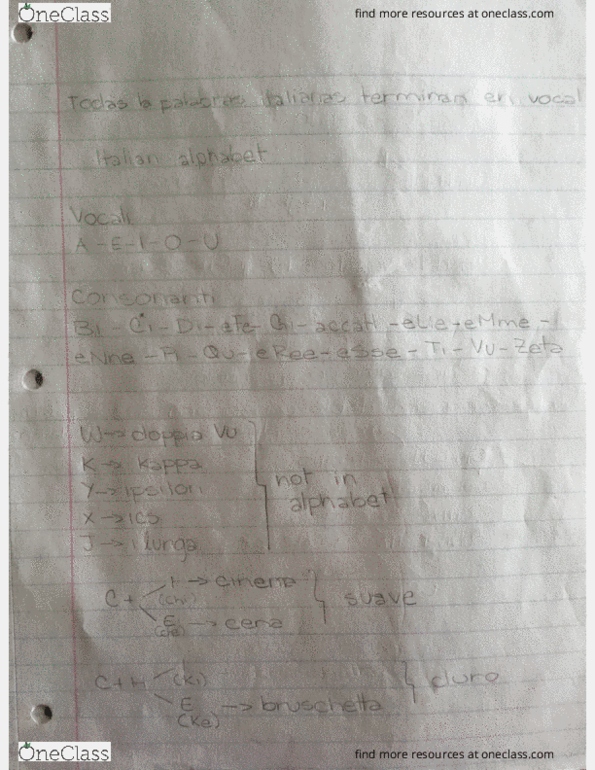 OneClass
find more resources at oneclass.com
Todas la palabras italianas terminan en vocal
Italian alphabet
Vocali
A - E - I - O - U
Consonanti
Bi - Ci - Di - eFe - Gi - accaH - eLLe - eMme -
eNne - Pi - Qu - eRee - eSse - Ti - Vu - Zeta
W → doppia Vu
K → kappa
Y → ipsilon
X → ics
J → i lunga
not in
alphabet
C +
I → cinema
(chi)
E → cena
suave
C + H
(Ki)
E → bruschetta
(Ke)
duro
OneClass
find more resources at oneclass.com